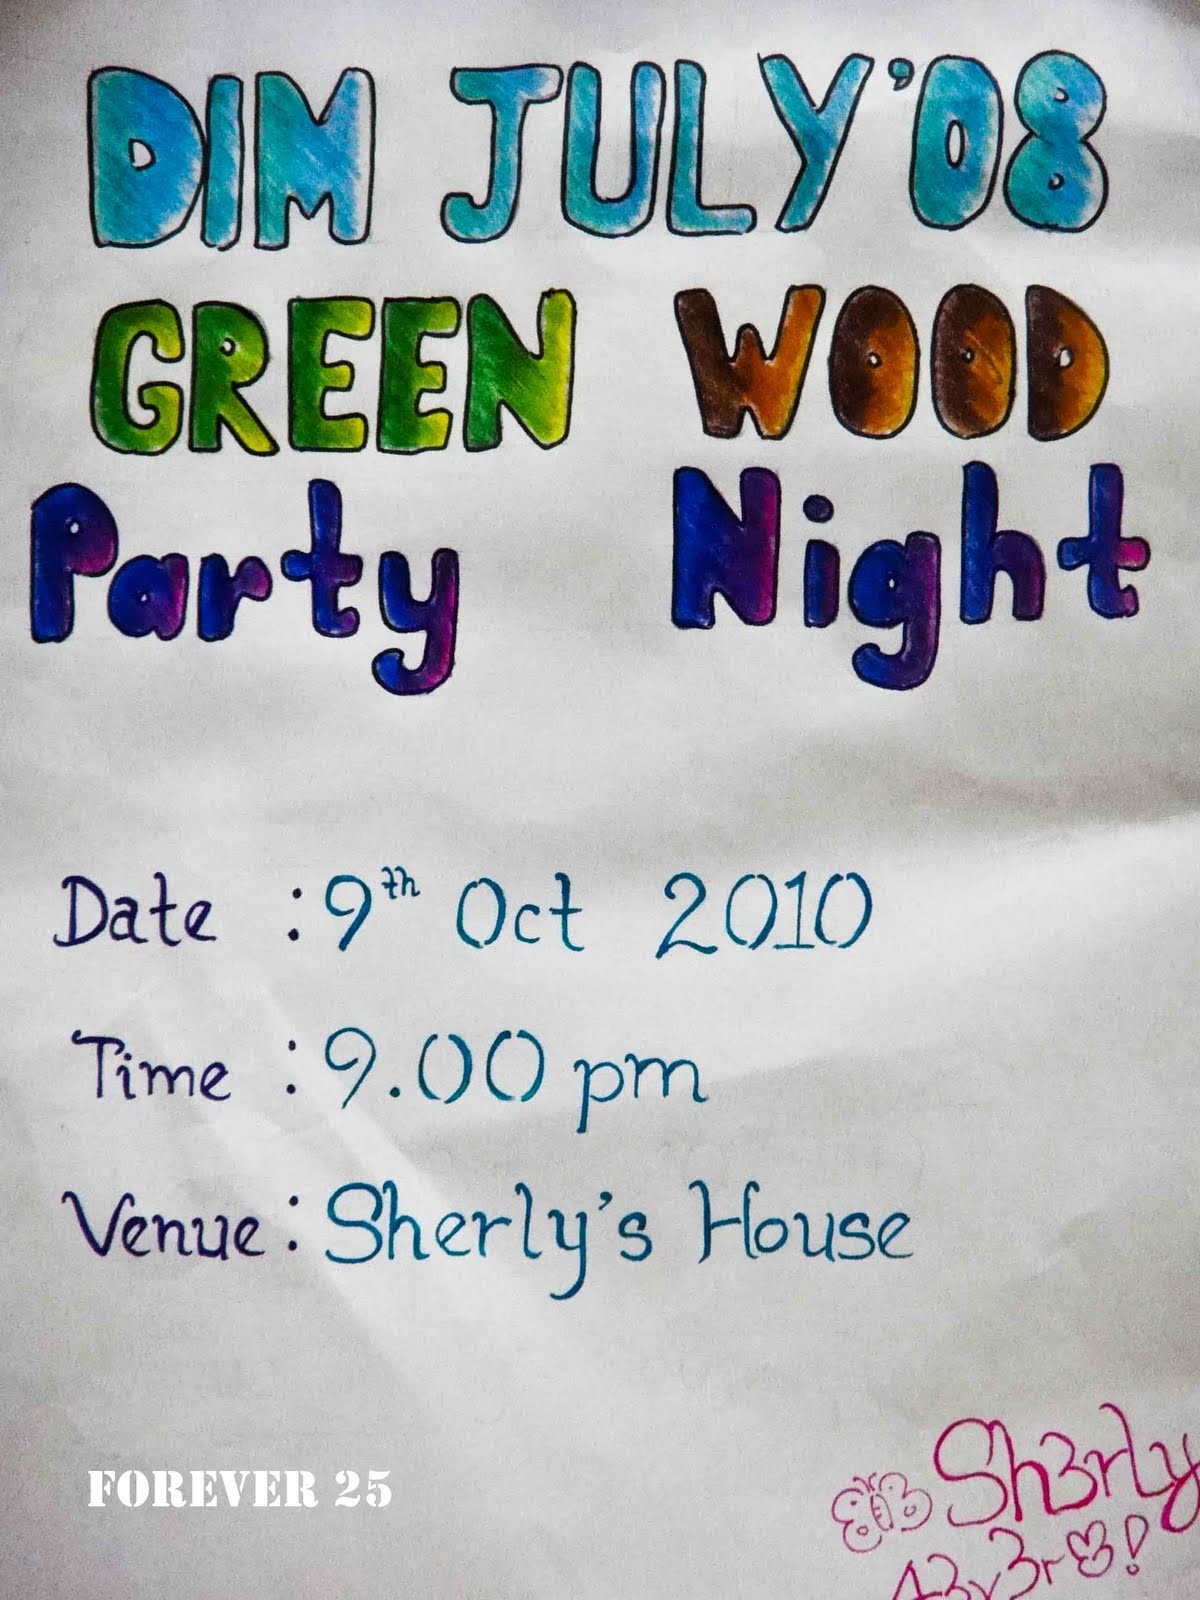 DIM JULY '08
GREEN WOOD
Party Night
Date : 9th Oct 2010
Time : 9.00 pm
Venue : Sherly's House
FOREVER 25
Sh3rly